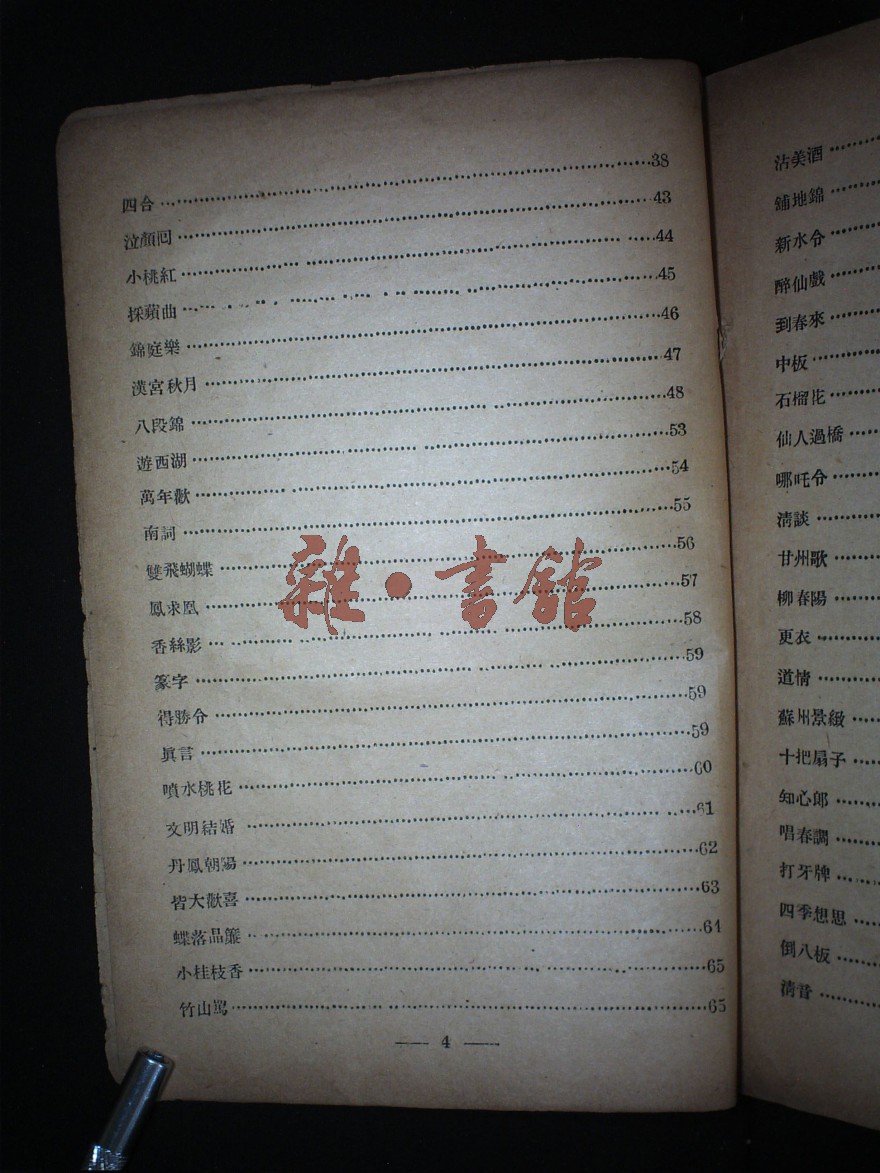 四合……38
泣顏囘……43
小桃紅……44
採蘋曲……45
錦庭樂……46
漢宮秋月……47
八段錦……48
遊西湖……53
萬年歡……54
南詞……55
雙飛蝴蝶……56
鳳求凰……57
香絲影……58
篆字……59
得勝令……59
眞言……59
噴水桃花……60
文明結婚……61
丹鳳朝陽……62
皆大歡喜……63
蝶落晶簾……64
小桂枝香……65
竹山駡……65
— 4 —
雜·書館
沽美酒……
鋪地錦……
新水令……
醉仙戲……
到春來……
中板……
石榴花……
仙人過橋……
哪吒令……
淸談……
甘州歌……
柳春陽……
更衣……
道情……
蘇州景緻……
十把扇子……
知心郞……
唱春調……
打牙牌……
四季想思……
倒八板……
淸音……